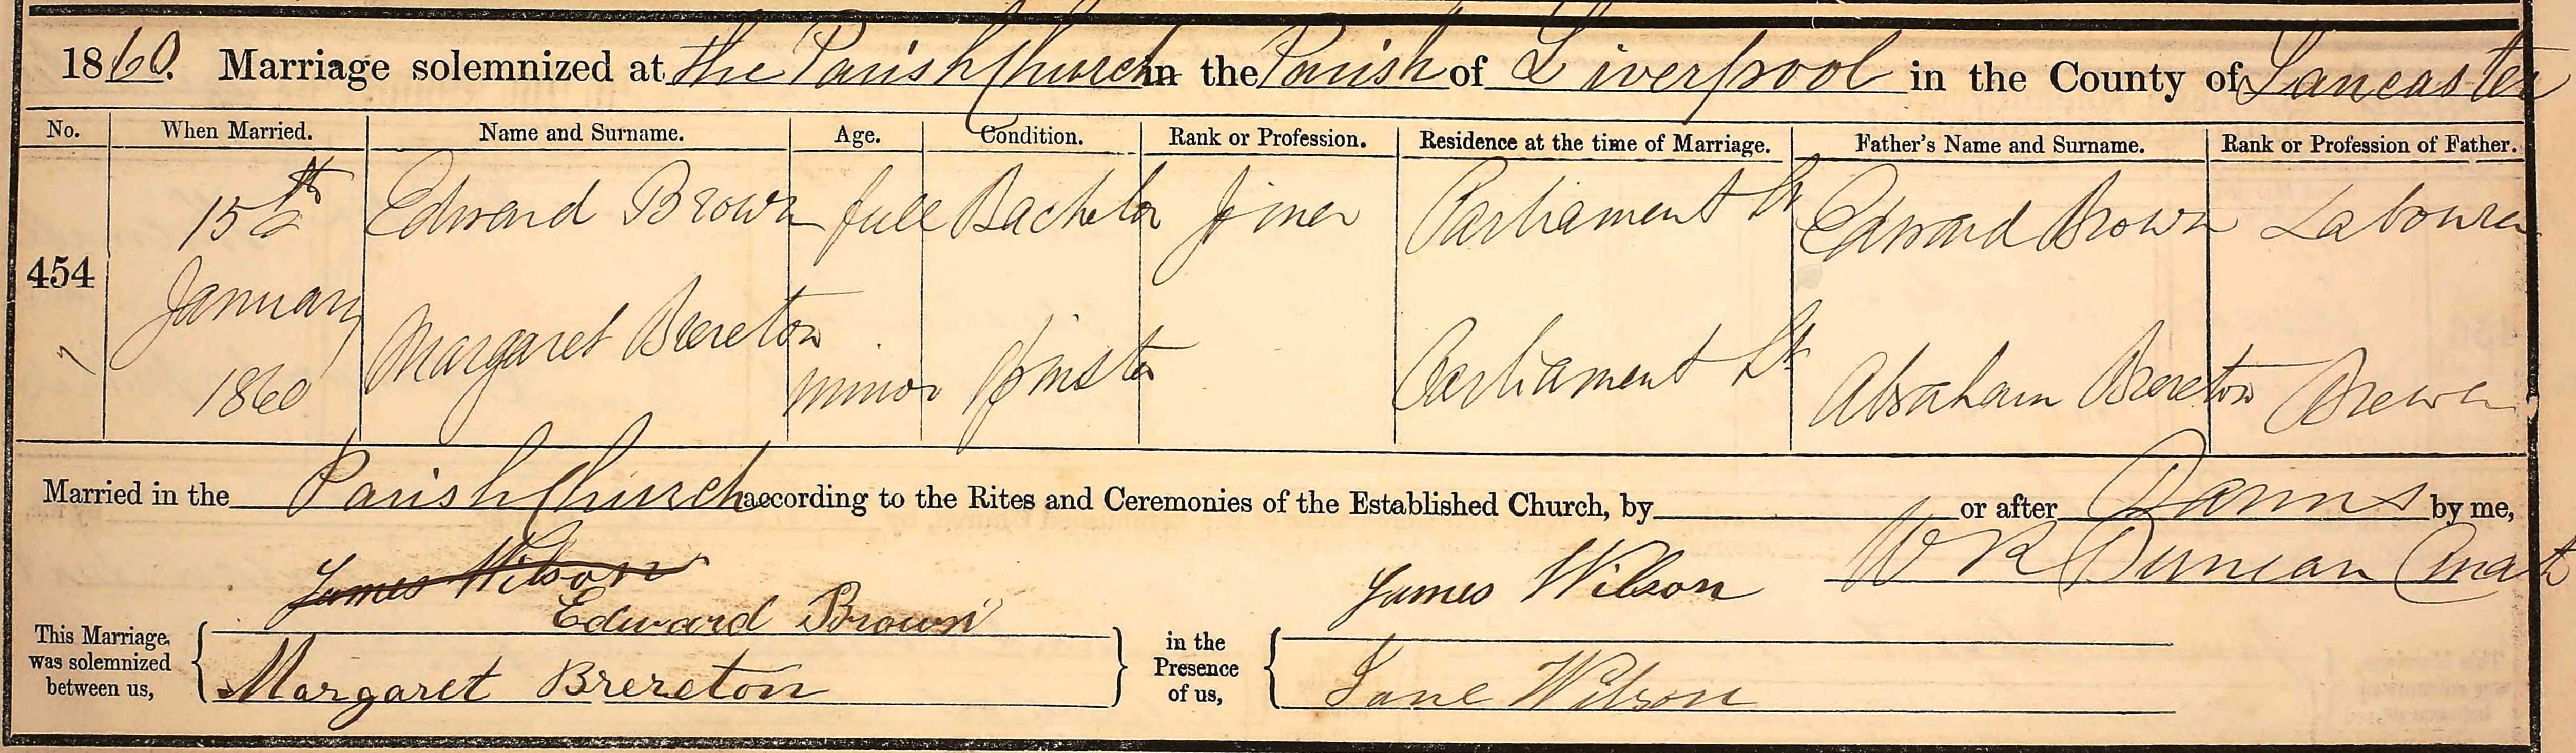 1860. Marriage solemnized at the Parish Church in the Parish of Liverpool in the County of Lancaster
No. When Married. Name and Surname. Age. Condition. Rank or Profession. Residence at the time of Marriage. Father's Name and Surname. Rank or Profession of Father.
454 15th January 1860 Edward Brown full Bachelor Joiner Parliament St Edward Brown Labourer
Margaret Brereton minor Spinster Parliament St Abraham Brereton Brewer
Married in the Parish Church according to the Rites and Ceremonies of the Established Church, by or after Banns by me,
James Wilson
Edward Brown
James Wilson
W R Duncan Curate
This Marriage was solemnized between us,
Margaret Brereton
in the Presence of us,
Jane Wilson